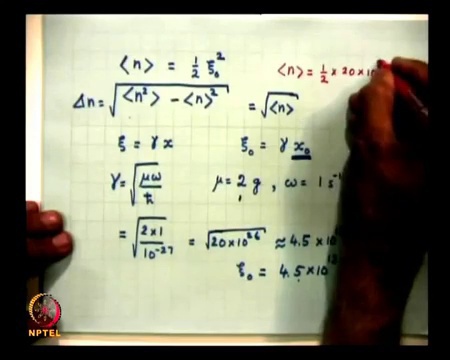 <n> = 1/2 ξ₀²
<n> = 1/2 × 20 × 10
Δn = √(<n²> − <n>²) = √<n>
ξ = γx ξ₀ = γ x₀
γ = √(μω/ħ) μ = 2 g, ω = 1 s⁻
= √(2×1/10⁻²⁷) = √(20×10²⁶) ≈ 4.5×10
ξ₀ = 4.5×10
NPTEL